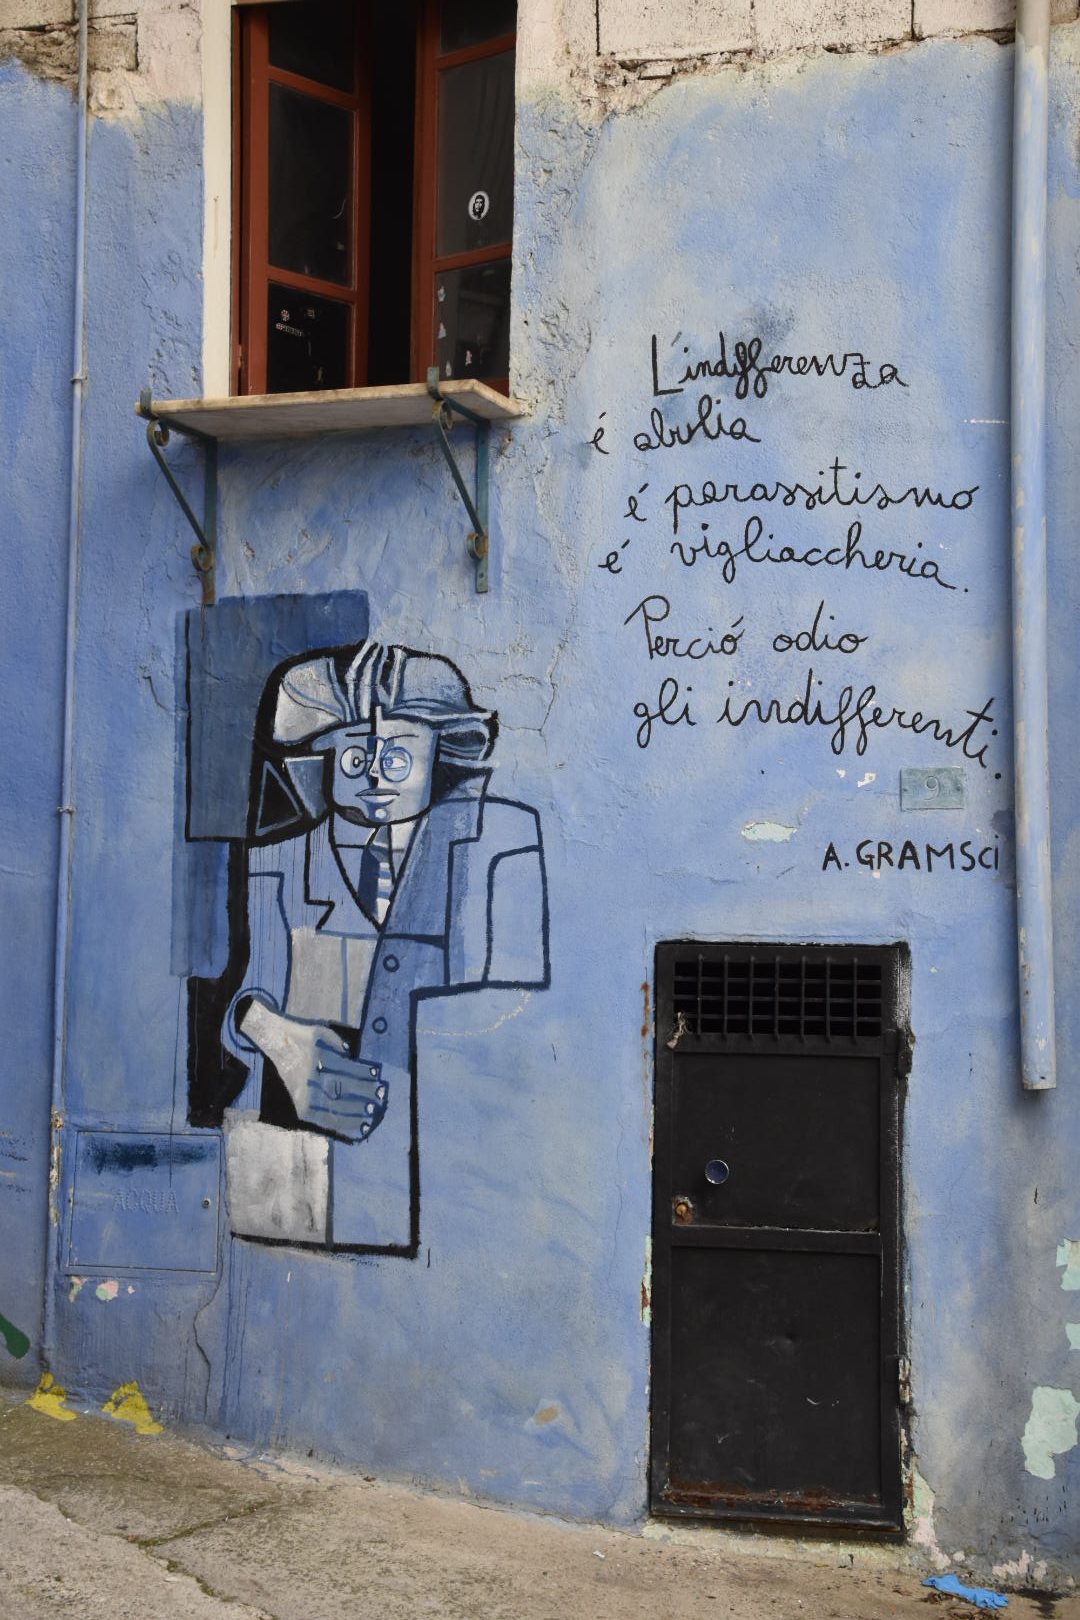 L'indifferenza
é abulia
é parassitismo
é vigliaccheria.
Perció odio
gli indifferenti.
9
A. GRAMSCI
ACQUA